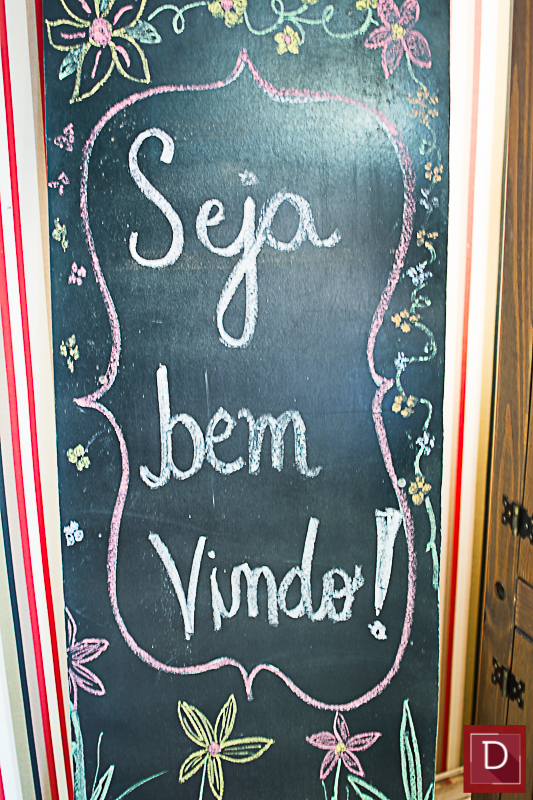 Seja
bem
Vindo!
D